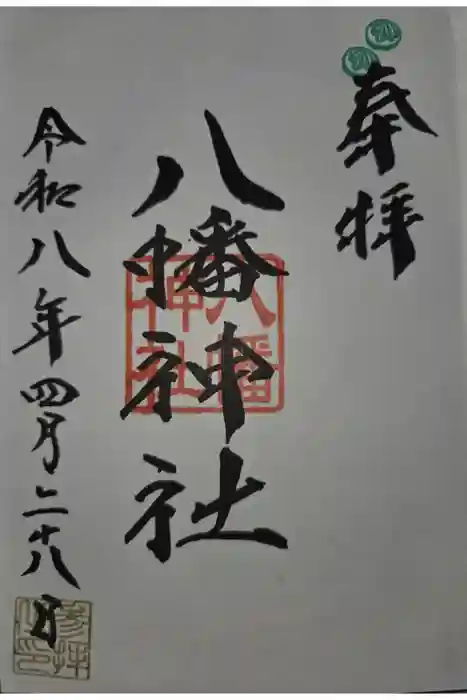 奉拝
八幡神社
八幡
神社
令和八年四月二十八日
参拝